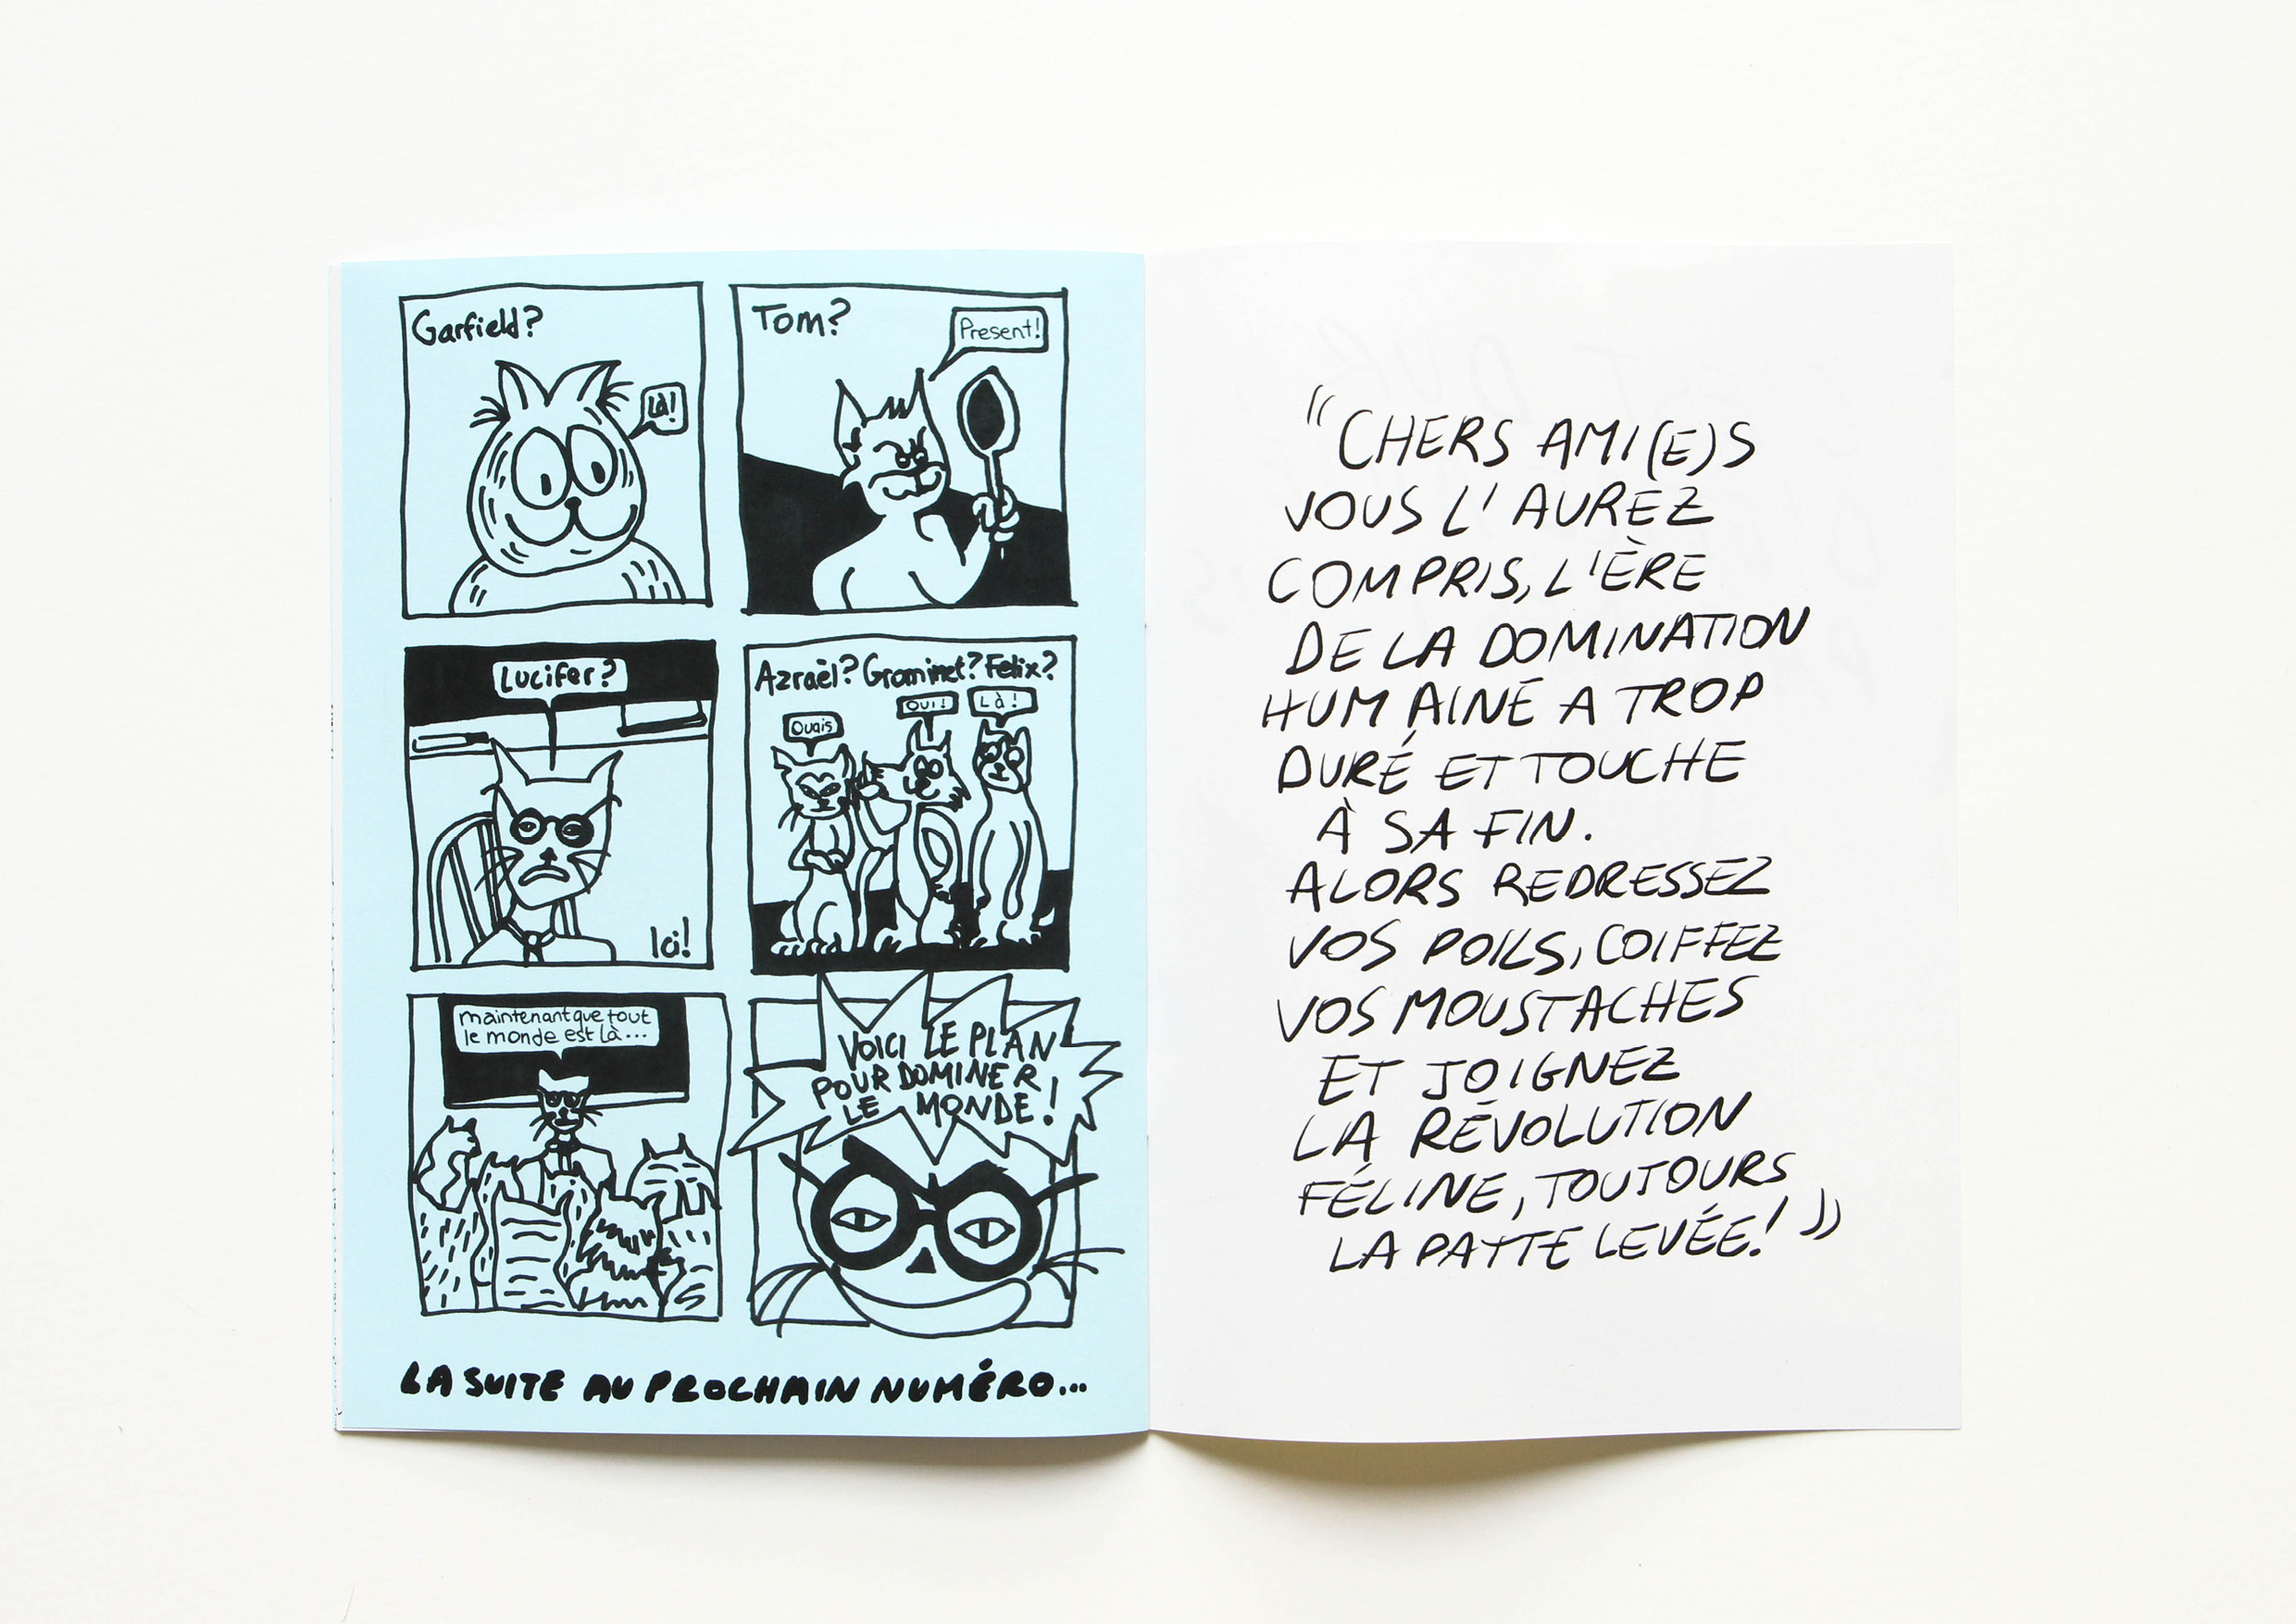 Garfield?
Là!
Tom?
Present!
Lucifer?
Ici!
Azraèl? Grominet? Felix?
Ouais
Oui!
Là!
maintenant que tout
le monde est là...
VOICI LE PLAN
POUR DOMINER
LE MONDE!
LA SUITE AU PROCHAIN NUMÉRO...
"CHERS AMI(E)S
VOUS L'AUREZ
COMPRIS, L'ÈRE
DE LA DOMINATION
HUMAINE A TROP
DURÉ ET TOUCHE
À SA FIN.
ALORS REDRESSEZ
VOS POILS, COIFFEZ
VOS MOUSTACHES
ET JOIGNEZ
LA RÉVOLUTION
FÉLINE, TOUJOURS
LA PATTE LEVÉE!"